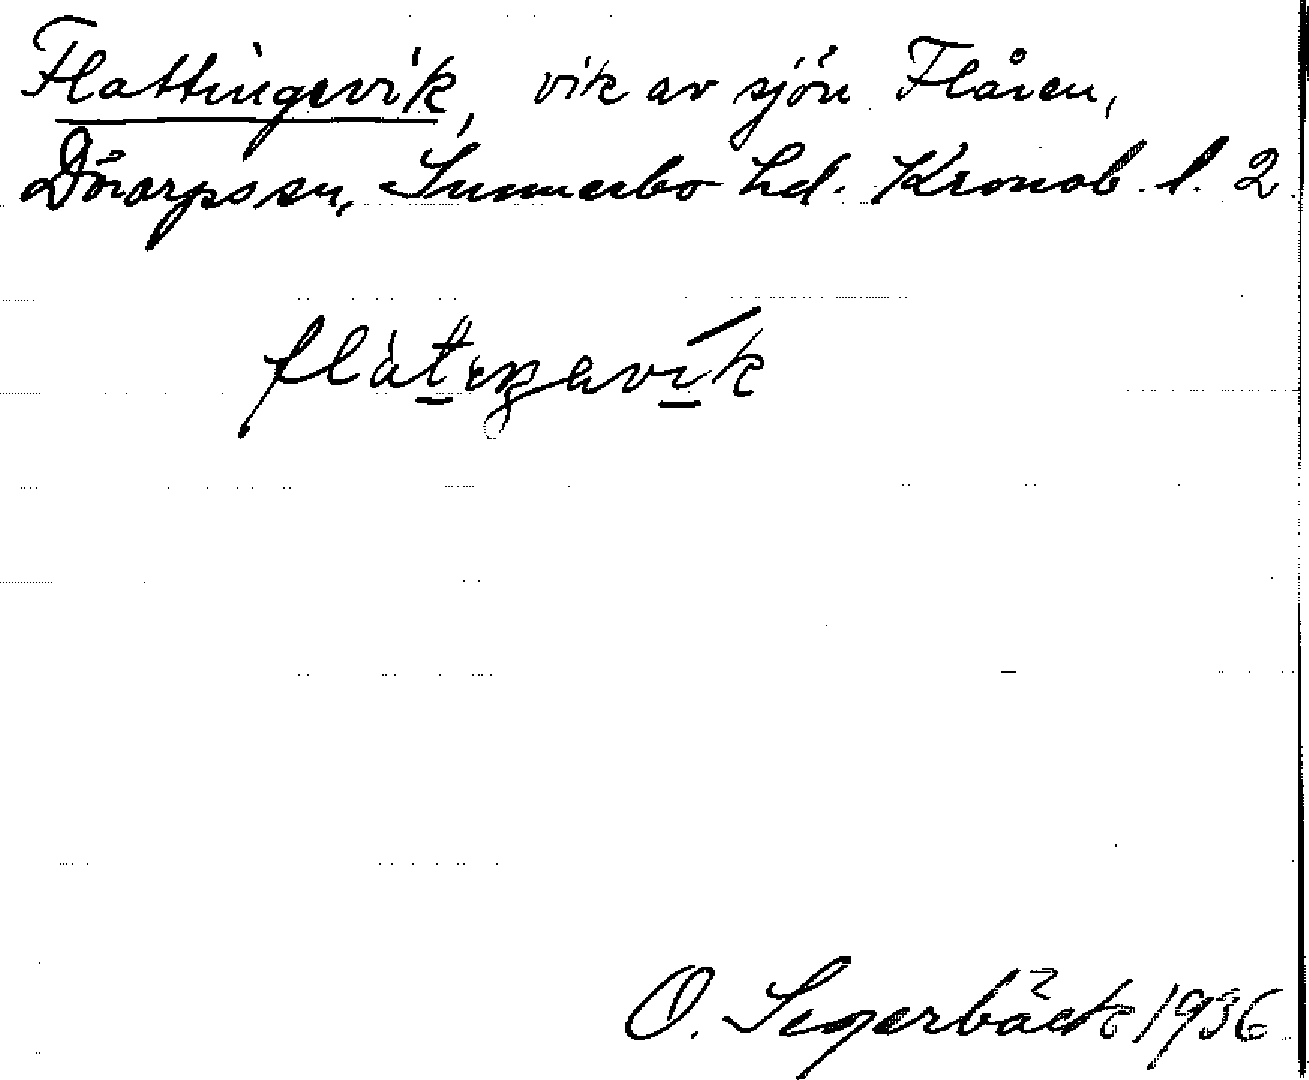 Flattingevik, vik av sjön Flåren,
Dörarps sn, Sunnerbo hd. Kronob. l. 2
flàtiŋavík
O. Segerbäck 1936